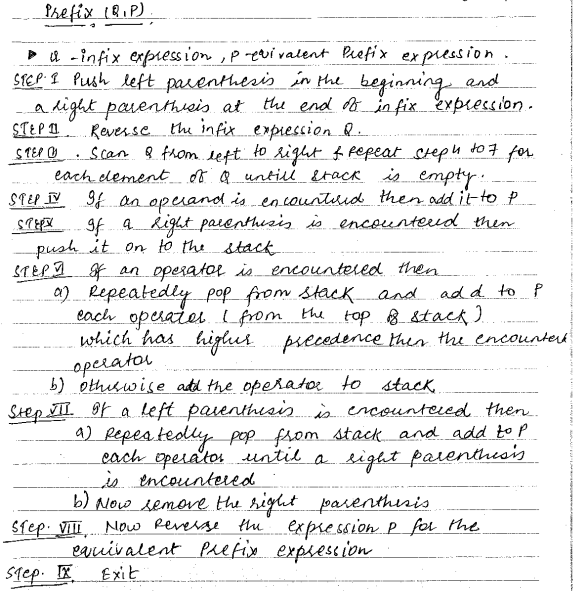 Prefix (Q,P)
▶ Q -infix expression, P-equivalent Prefix expression.
STEP-I Push left parenthesis in the beginning and
a right parenthesis at the end of infix expression.
STEP II. Reverse the infix expression Q.
STEP III. Scan Q from left to right & repeat step 4 to 7 for
each element of Q untill stack is empty.
STEP IV If an operand is encountered then add it to P
STEP V If a right parenthesis is encountered then
push it on to the stack
STEP VI If an operator is encountered then
a) Repeatedly pop from stack and add to P
each operator (from the top of stack)
which has higher precedence then the encountered
operator
b) otherwise add the operator to stack
Step VII. If a left parenthesis is encountered then
a) Repeatedly pop from stack and add to P
each operator until a right parenthesis
is encountered
b) Now remove the right parenthesis
STEP. VIII. Now Reverse the expression P for the
equivalent Prefix expression
STEP. IX Exit